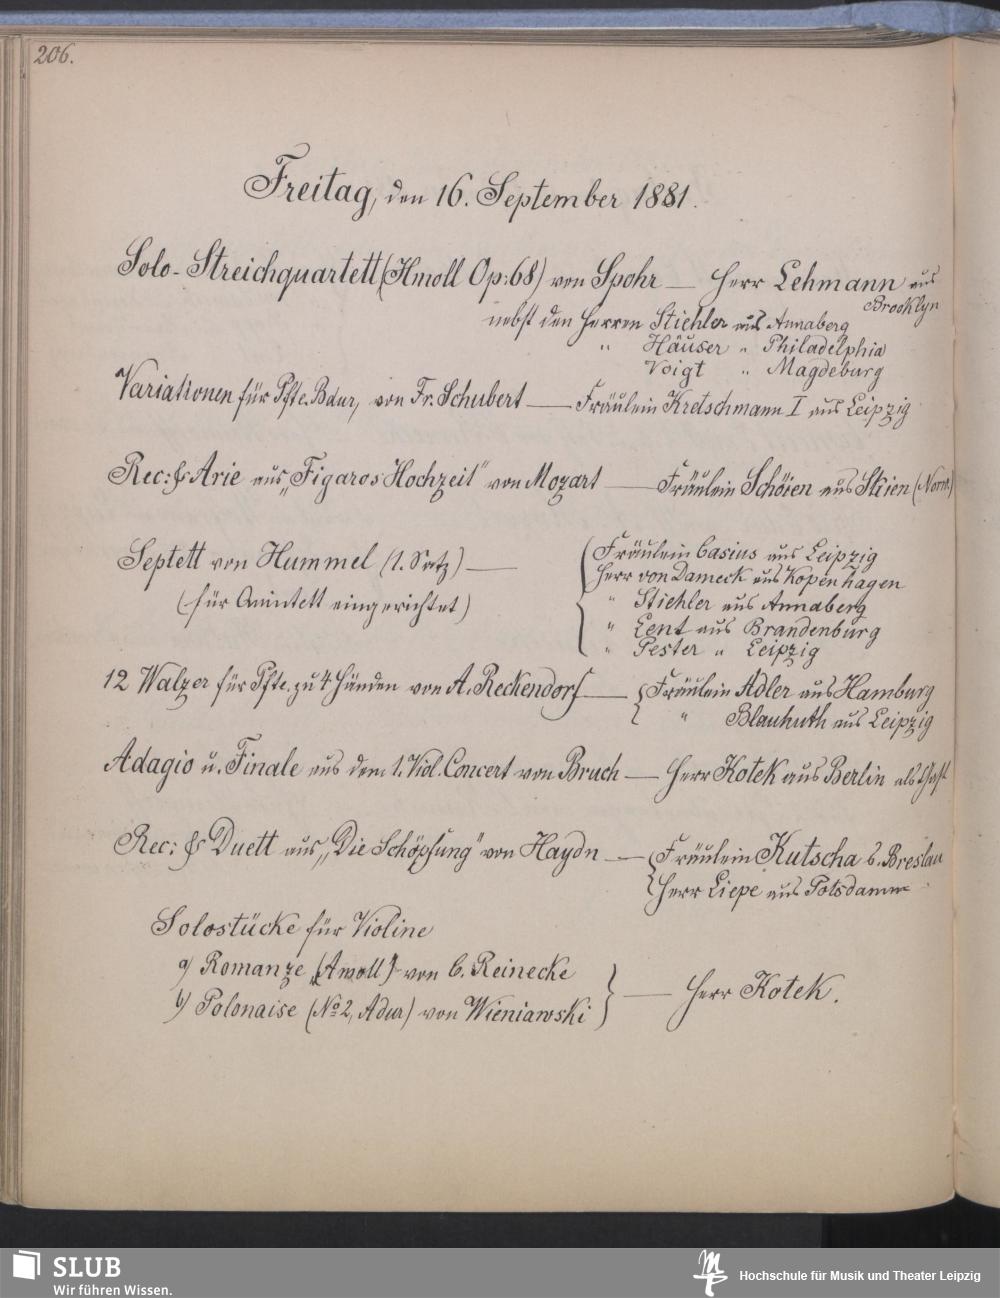 206.
Freitag, den 16. September 1881.
Solo-Streichquartett (Hmoll Op: 68) von Spohr — Herr Lehmann aus
Brooklyn
nebst den Herren Stiehler aus Annaberg
" Häuser " Philadelphia
Voigt " Magdeburg
Variationen für Pfte. Bdur, von Fr. Schubert — Fräulein Kretschmann I aus Leipzig
Rec: & Arie aus „Figaros Hochzeit" von Mozart — Fräulein aus Skien (Norw.)
Septett von Hummel (1. Satz) — Fräulein Casius aus Leipzig
Herr von Dameck aus Kopenhagen
(für Quintett eingerichtet) " Stiehler aus Annaberg
" Lent aus Brandenburg
" Pester " Leipzig
12 Walzer für Pfte. zu 4 Händen von A. Reckendorf — Fräulein Adler aus Hamburg
" Blauhuth aus Leipzig
Adagio u. Finale aus dem 1. Viol. Concert von Bruch — Herr Kotek aus Berlin als Gast
Rec: & Duett aus „Die Schöpfung" von Haydn — Fräulein Kutscha a. Breslau
Herr Liepe aus Potsdamm
Solostücke für Violine
a) Romanze (Amoll) von C. Reinecke
b) Polonaise (No 2, Adur) von Wieniawski — Herr Kotek.
SLUB
Wir führen Wissen.
Hochschule für Musik und Theater Leipzig